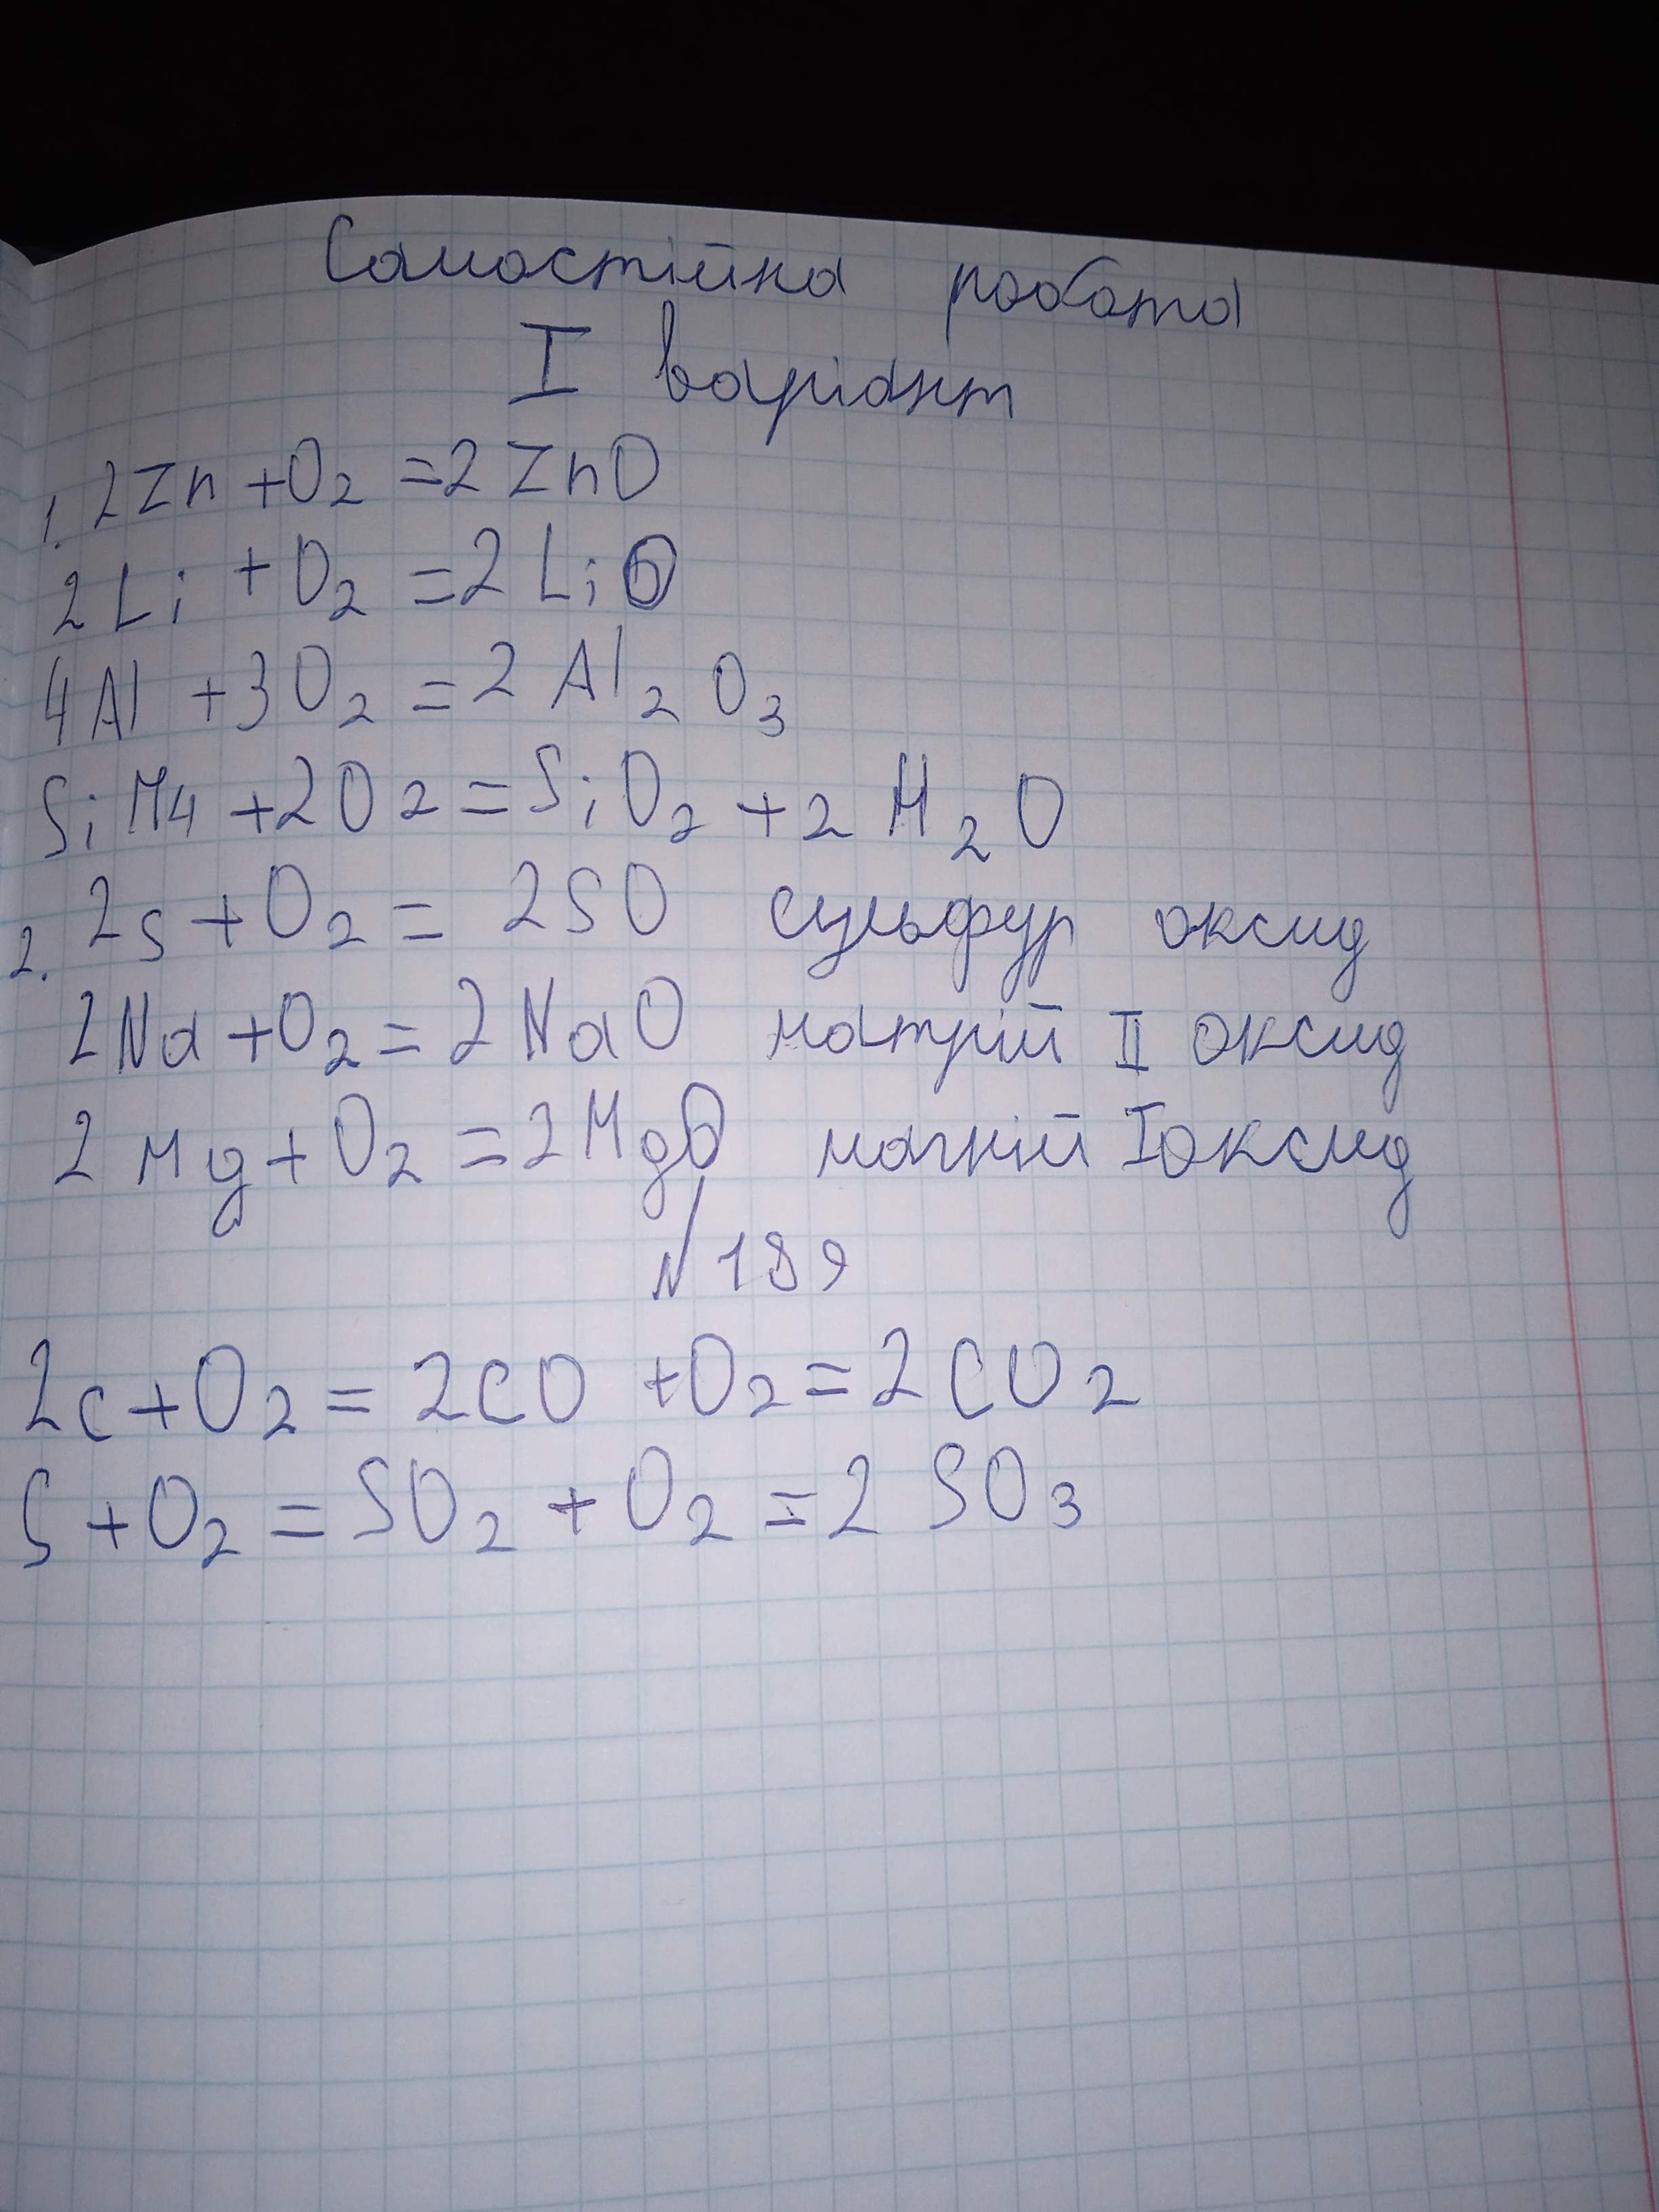 Самостійна робота
I варіант
1. 2Zn + O₂ = 2ZnO
2Li + O₂ = 2LiO
4Al + 3O₂ = 2Al₂O₃
SiH4 + 2O₂ = SiO₂ + 2H₂O
2. 2S + O₂ = 2SO сульфур оксид
2Na + O₂ = 2NaO натрій II оксид
2Mg + O₂ = 2MgO магній I оксид
№ 189
2C + O₂ = 2CO + O₂ = 2CO₂
S + O₂ = SO₂ + O₂ = 2SO₃